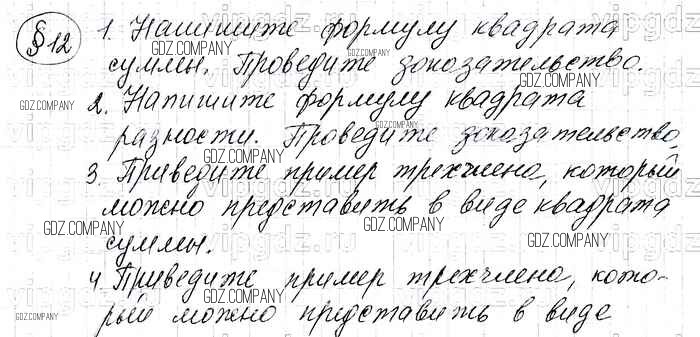 § 12
1. Напишите формулу квадрата
суммы. Проведите доказательство.
2. Напишите формулу квадрата
разности. Проведите доказательство.
3. Приведите пример трехчлена, который
можно представить в виде квадрата
суммы.
4. Приведите пример трехчлена, кото-
рый можно представить в виде
GDZ.COMPANY
GDZ.COMPANY
GDZ.COMPANY
GDZ.COMPANY
GDZ.COMPANY
GDZ.COMPANY
GDZ.COMPANY
GDZ.COMPANY
GDZ.COMPANY
GDZ.COMPANY
GDZ.COMPANY
GDZ.COMPANY